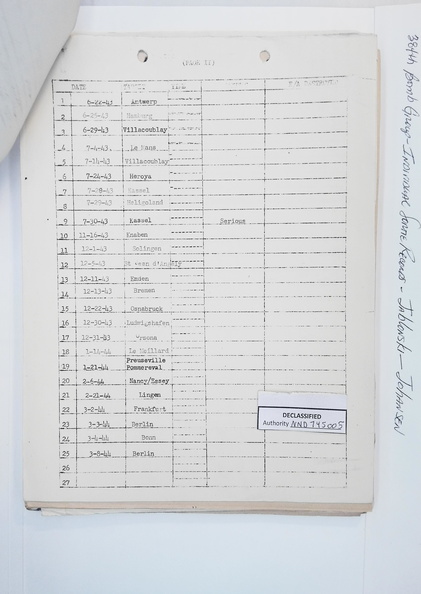 DATE TARGET TIME
1 6-22-43 Antwerp
2 6-25-43 Hamburg
3 6-29-43 Villacoublay
4 7-4-43 Le Mans
5 7-14-43 Villacoublay
6 7-24-43 Heroya
7 7-28-43 Kassel
8 7-29-43 Heligoland
9 7-30-43 Kassel Serious
10 11-16-43 Knaben
11 12-1-43 Solingen
12 12-5-43 St
13 12-11-43 Emden
14 12-13-43 Bremen
15 12-22-43 Osnabruck
16 12-30-43 Ludwigshafen
17 12-31-43
18 1-14-44 Le Meillard
Preuseville
19 1-21-44 Pommereval
20 2-6-44 Nancy/Essey
21 2-21-44 Lingen
22 3-2-44 Frankfurt
23 3-3-44 Berlin
24 3-4-44 Bonn
25 3-8-44 Berlin
26
27
DECLASSIFIED
Authority NND 745005
384th Bomb Group - Individual Sortie Records - Jablonski - Johansen